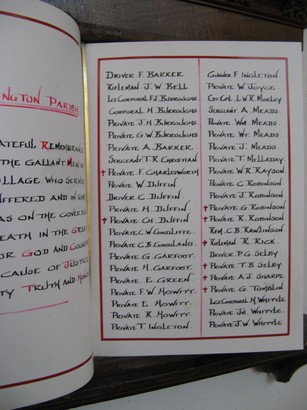 NGTON PARISH
ATEFUL REMEMBRANCE
THE GALLANT MEN OF
ILLAGE WHO SERVED
UFFERED AND IN SOME
AS ON THE COVER
EATH IN THE GREAT
OR GOD AND COUNTRY
CAUSE OF JUSTICE
TY TRUTH AND HONOUR
DRIVER F. BARKER.
RIFLEMAN J. W. BELL
CORPORAL H. BURROUGHS
PRIVATE G. W. BURROUGHS
PRIVATE A. BARKER
SERGEANT T. R. CHRISTIAN
† PRIVATE F. CHARLESWORTH
PRIVATE W. DUFFIN
DRIVER C. DUFFIN
PRIVATE H. DUFFIN
† PRIVATE CH. DUFFIN
PRIVATE C. W. GOODLIFFE
PRIVATE G. GARFOOT
PRIVATE H. GARFOOT
PRIVATE E. GREEN
PRIVATE F. W. HOWITT
PRIVATE E. HOWITT
PRIVATE R. HOWITT
PRIVATE T. INGLETON
GUNNER F. INGLETON
PRIVATE W. JOYCE
L. W. R. MORLEY
SERGEANT A. MEADS
PRIVATE WM. MEADS
PRIVATE WR. MEADS
PRIVATE J. MEADS
PRIVATE T. MELLADAY
PRIVATE W. R. RAYSON
PRIVATE C. ROBINSON
PRIVATE J. ROBINSON
† PRIVATE R. ROBINSON
C. B. RAWLINSON
† RIFLEMAN R. RICK
DRIVER P. G. SELBY
† PRIVATE T. B. SELBY
† PRIVATE A. J. SHARPE
† PRIVATE G. TOMBLIN
LCE CORPORAL H. WHYTLE
PRIVATE JA. WHYTLE
PRIVATE J. W. WHYTLE